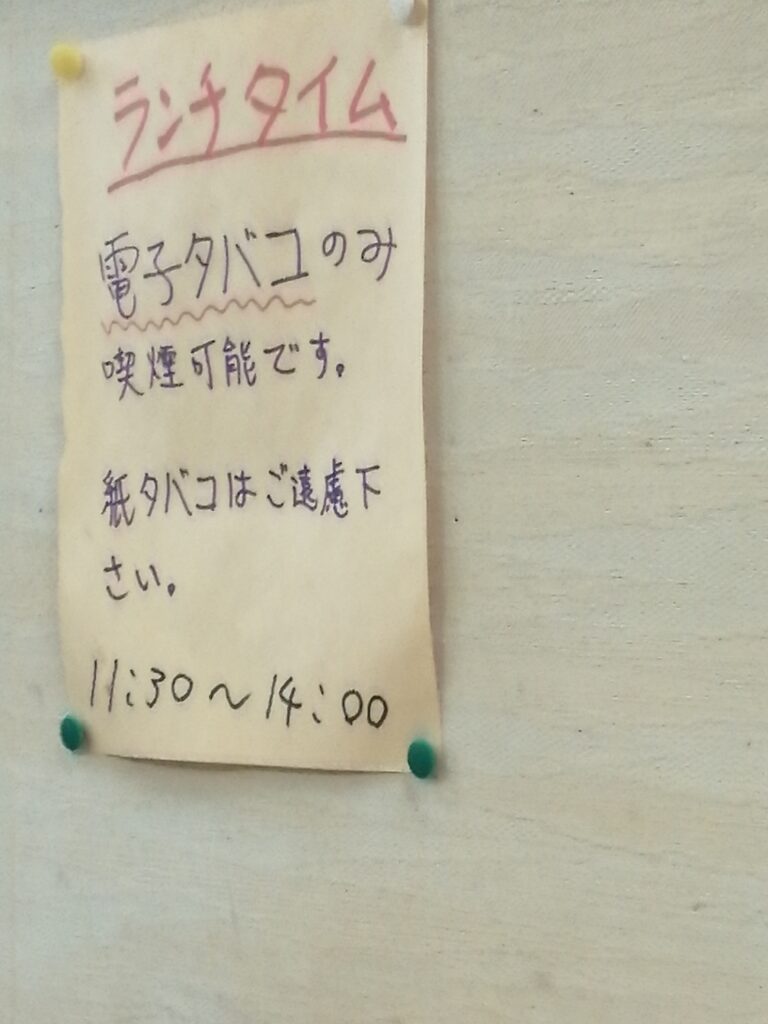 ランチタイム
電子タバコのみ
喫煙可能です。
紙タバコはご遠慮下
さい。
11:30～14:00